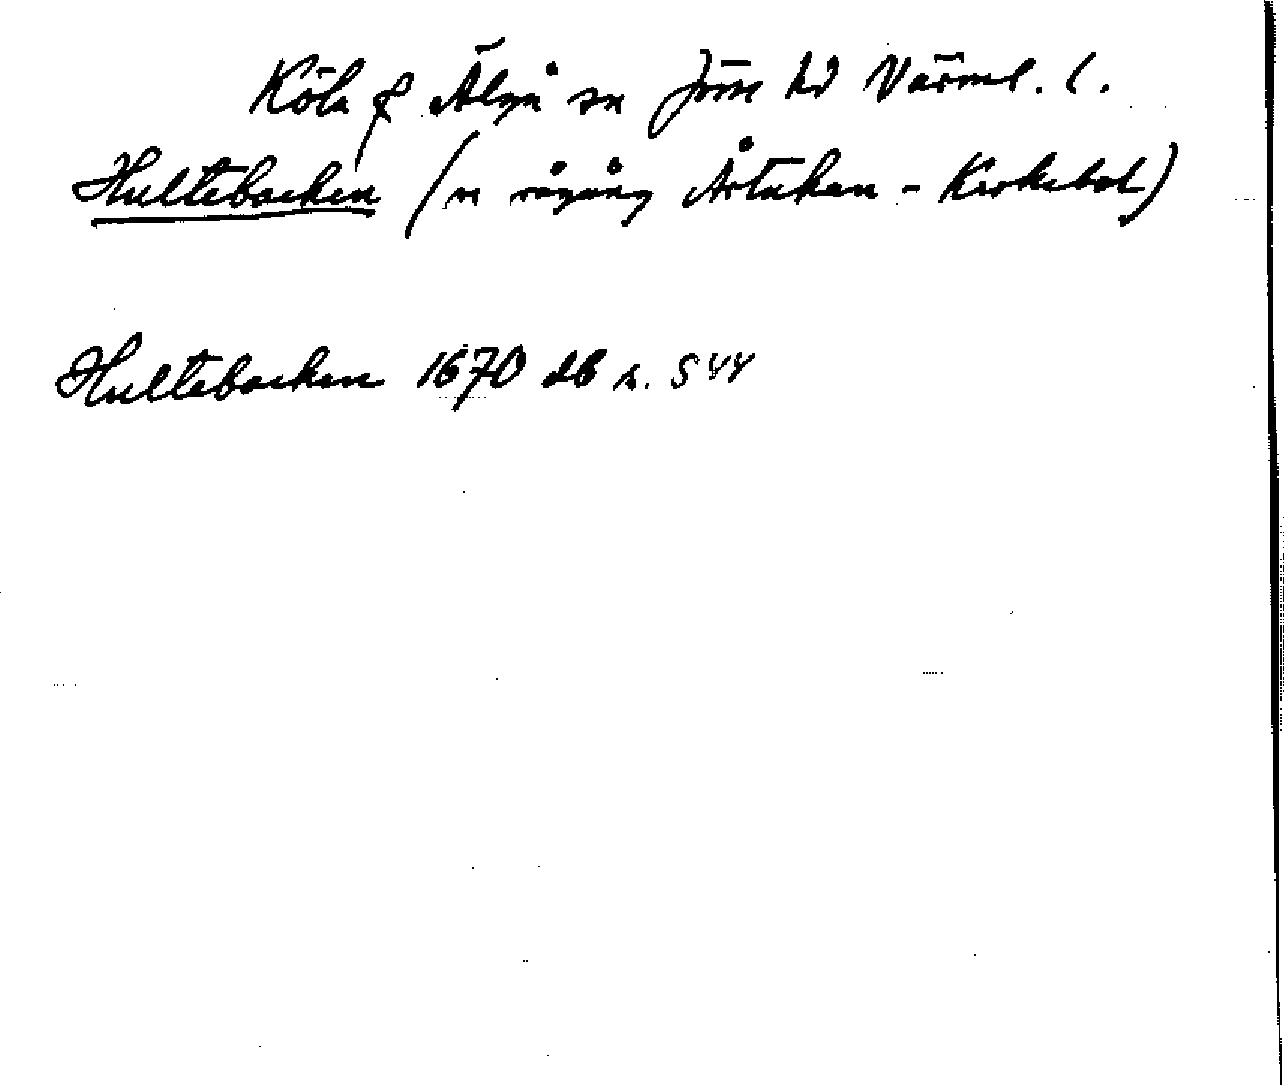 Köla & Älgå sn Jösse hd Värml. l.
Hultebacken (n rågång Årtakan - Kirkebol)
Hultebacken 1670 db s. 544